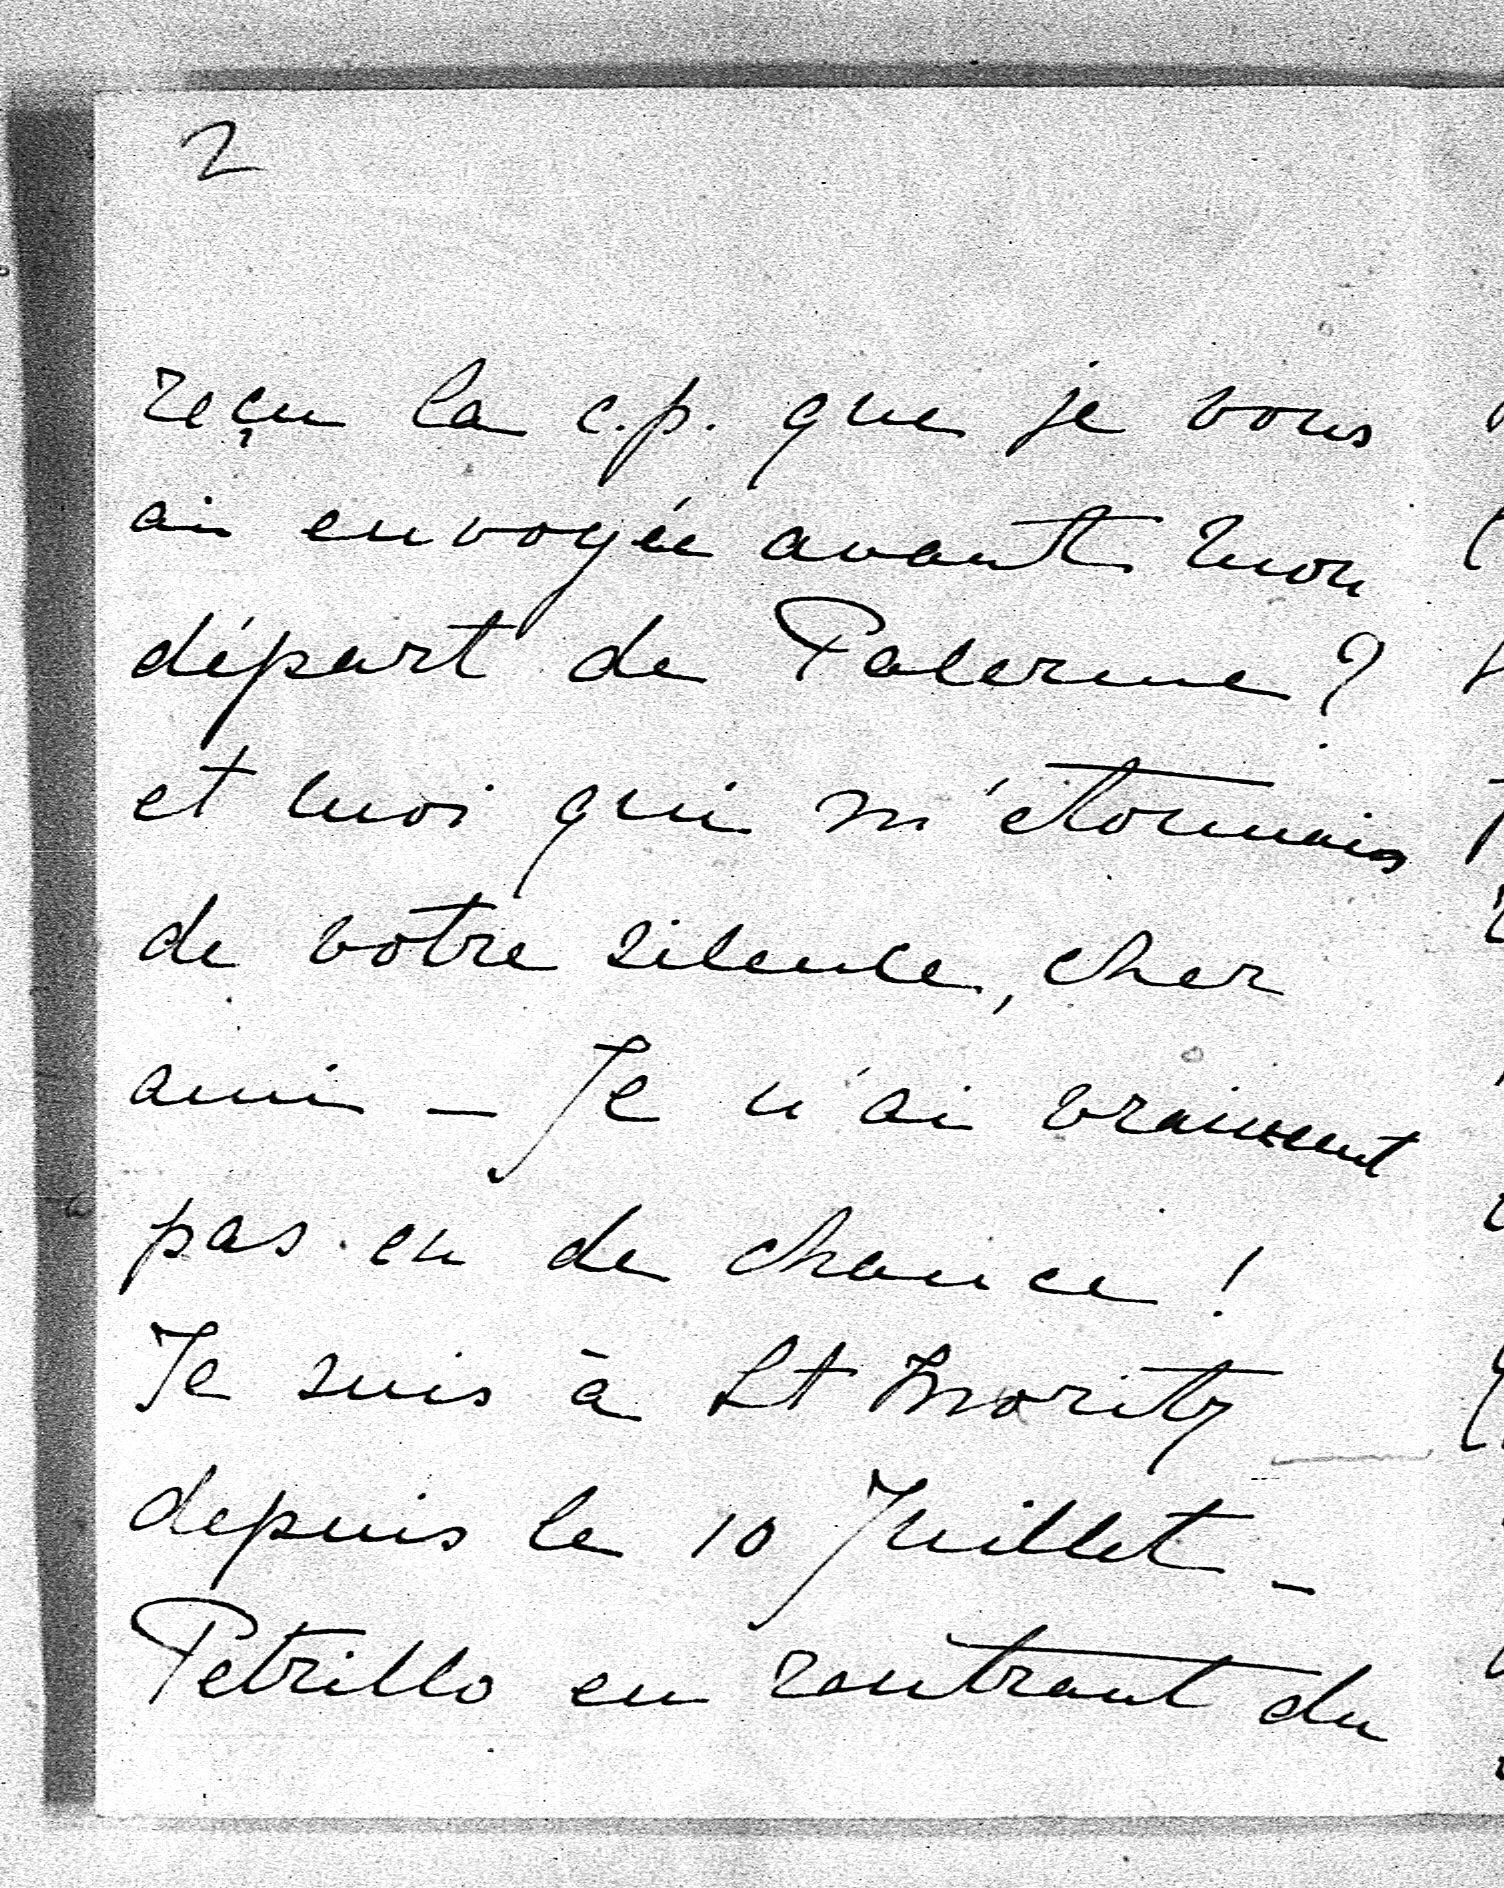 2
reçu la c.p. que je vous
ai envoyée avant mon
départ de Palerme ?
et moi qui m'étonnais
de votre silence, cher
ami – Je n'ai vraiment
pas eu de chance !
Je suis à St Moritz
depuis le 10 Juillet –
Petrillo en rentrant du